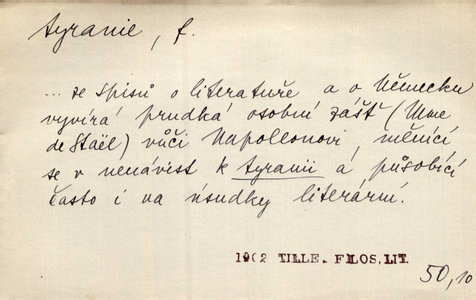 tyranie, f.
... ze spisů o literatuře a o Německu
vyvírá prudká osobní zášť (Mme
de Staël) vůči Napoleonovi, měnící
se v nenávist k tyranii a působící
často i na úsudky literární.
1902 TILLE. FILOS. LIT.
50, 10